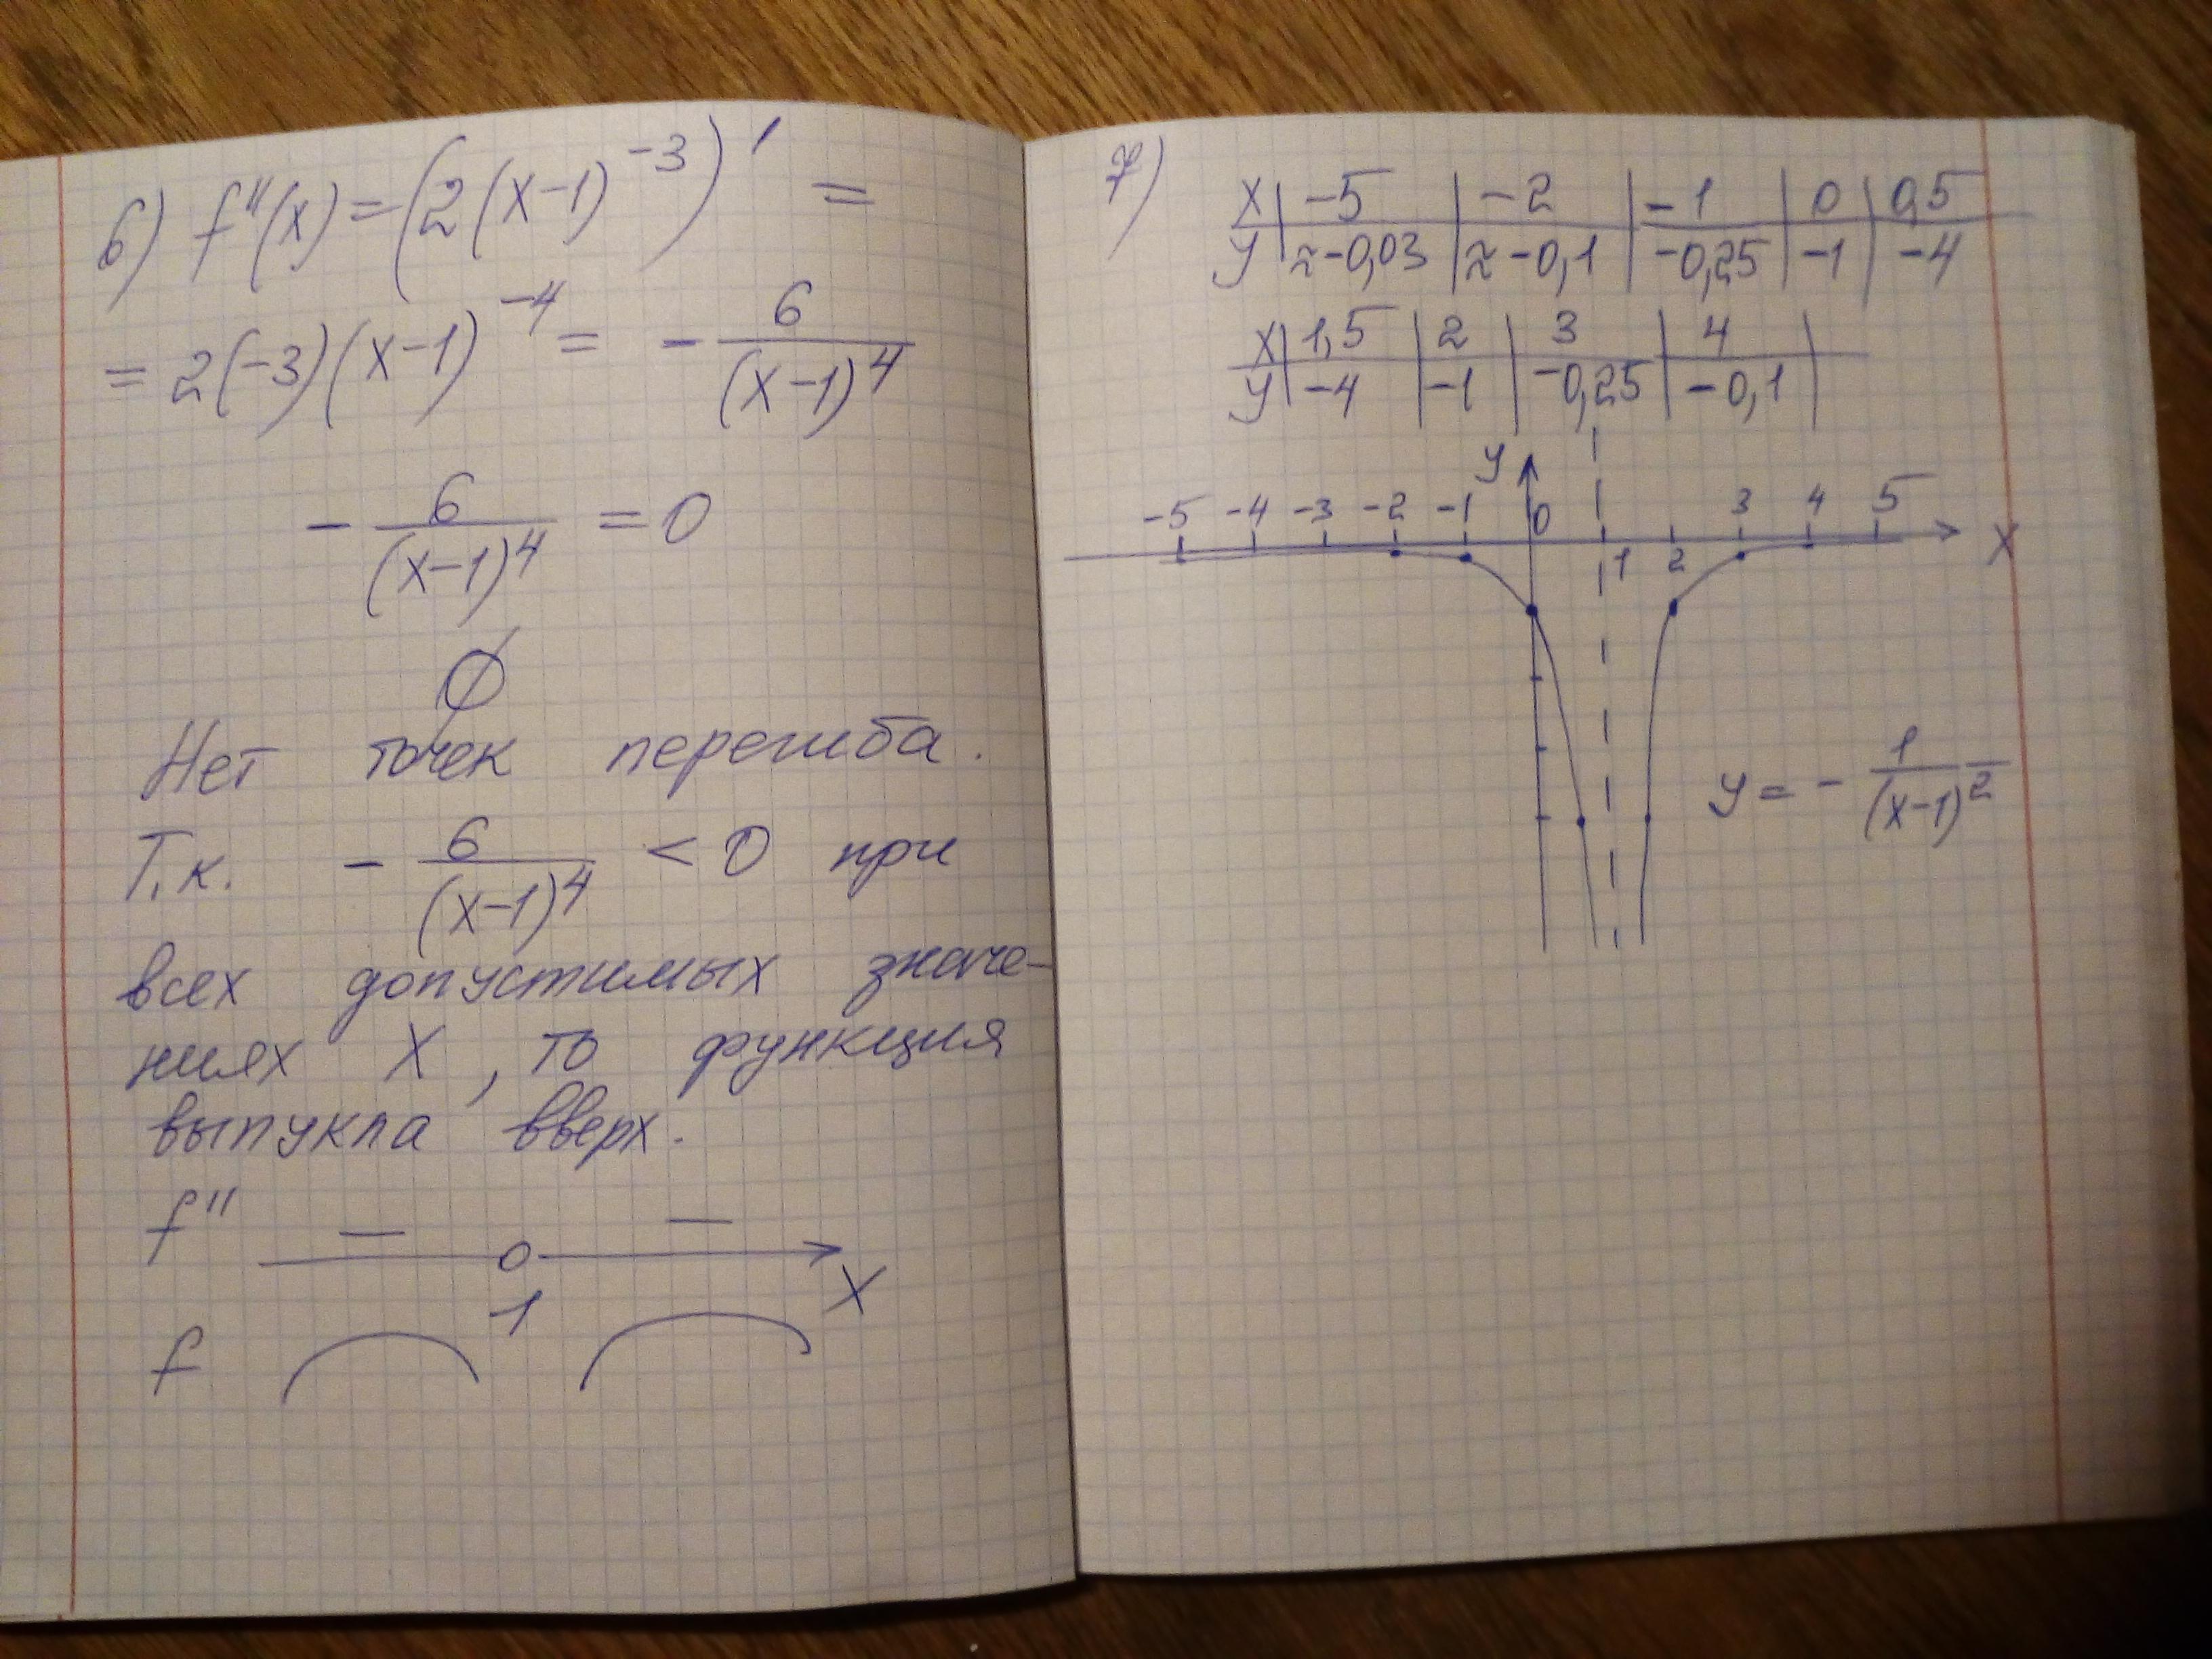 6) f''(x) = (2(x-1)^-3)' =
= 2(-3)(x-1)^-4 = - 6/(x-1)^4
- 6/(x-1)^4 = 0
∅
Нет точек перегиба.
Т.к. - 6/(x-1)^4 < 0 при
всех допустимых значе-
ниях X, то функция
выпукла вверх.
f'' — — 
1 X
f
7)
x | -5 | -2 | -1 | 0 | 0,5
y | ≈-0,03 | ≈-0,1 | -0,25 | -1 | -4
x | 1,5 | 2 | 3 | 4 |
y | -4 | -1 | -0,25 | -0,1 |
y
-5 -4 -3 -2 -1 0 3 4 5
1 2 X
y = - 1/(x-1)^2